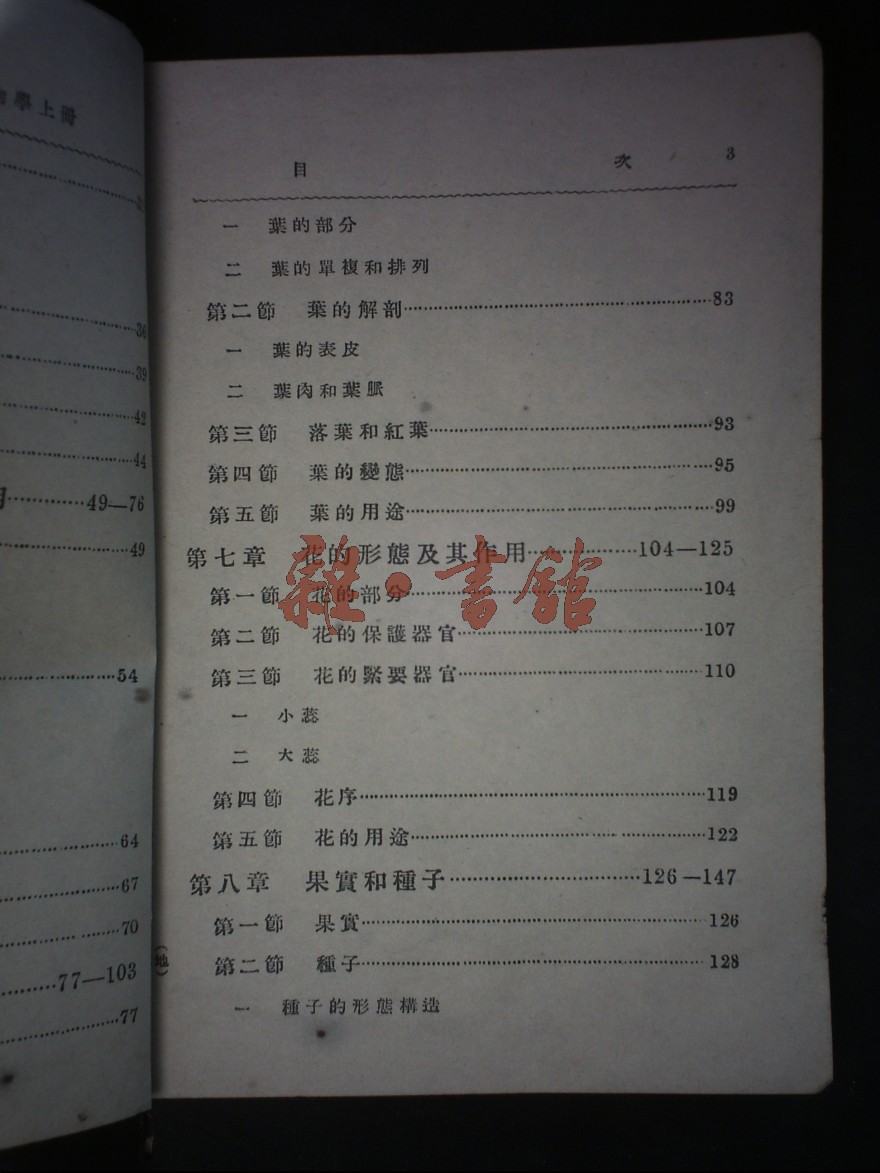 學上冊
36
39
42
44
49—76
49
54
64
67
70
77—103
77
目 次 3
一 葉的部分
二 葉的單複和排列
第二節 葉的解剖 83
一 葉的表皮
二 葉肉和葉脈
第三節 落葉和紅葉 93
第四節 葉的變態 95
第五節 葉的用途 99
第七章 花的形態及其作用 104—125
第一節 花的部分 104
第二節 花的保護器官 107
第三節 花的緊要器官 110
一 小蕊
二 大蕊
第四節 花序 119
第五節 花的用途 122
第八章 果實和種子 126—147
第一節 果實 126
第二節 種子 128
一 種子的形態構造
(地)
雜·書館